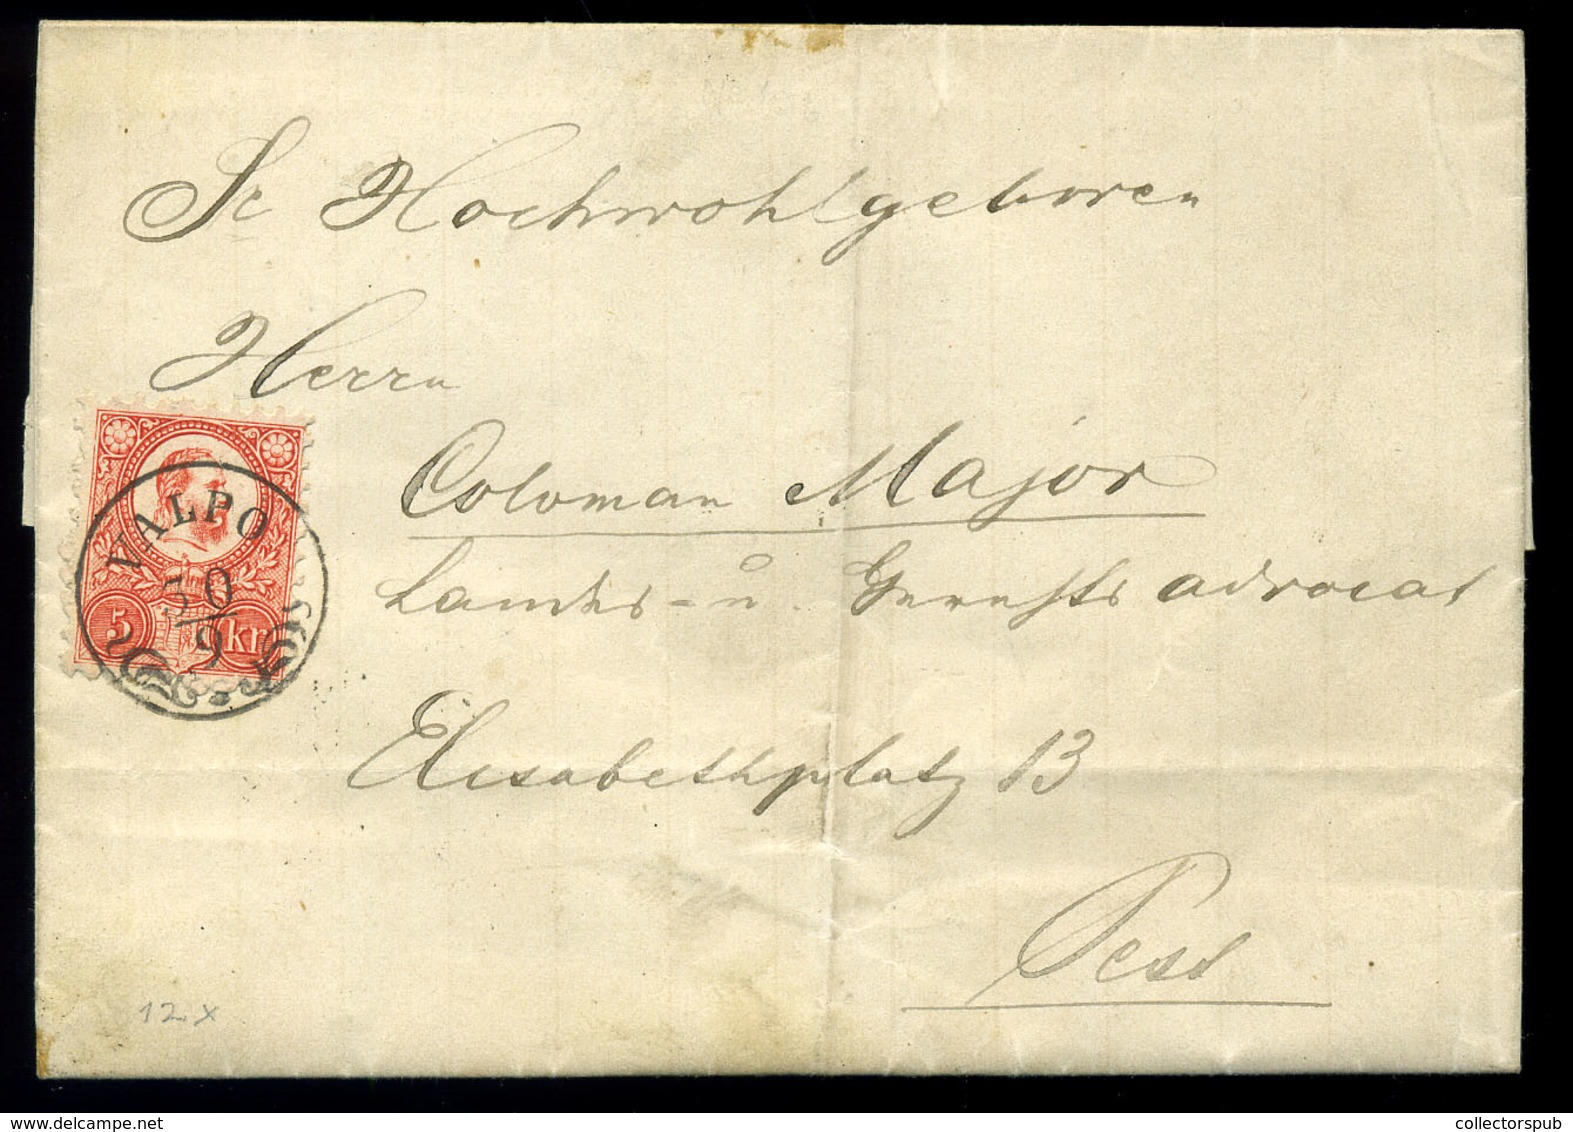 Sr Hochwohlgeboren
Herrn
Coloman Major
Landes - u. Gerichts advocat
Elisabethplatz 13
Pest
VALPO
30
9
5 kr
12 x
collectorspub.com